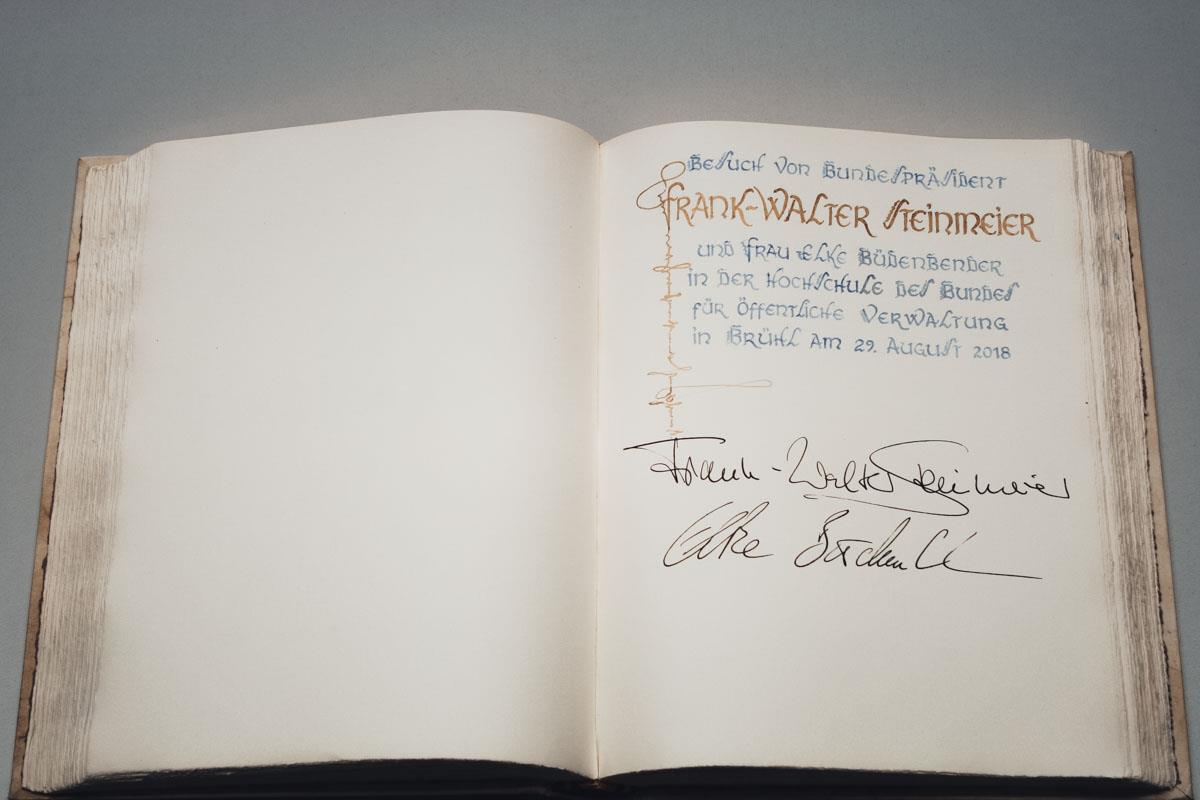 Besuch von Bundespräsident
Frank-Walter Steinmeier
und Frau Elke Büdenbender
in der Hochschule des Bundes
für Öffentliche Verwaltung
in Brühl am 29. August 2018
Frank-Walter Steinmeier
Elke Büdenbender